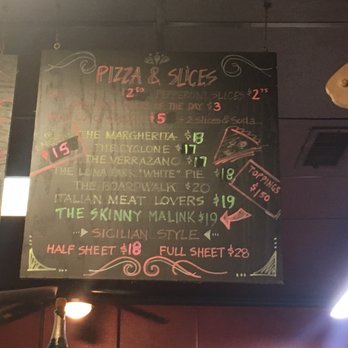 PIZZA & SLICES
$2.50 PEPPERONI SLICES $2.75
OF THE DAY $3
15 2 Slices & Soda
THE MARGHERITA $18
15.
THE CYCLONE $17
THE VERRAZANO $17
THE LUNA PARK "WHITE" PIE $18
TOPPINGS $1.50
THE BOARDWALK $20
ITALIAN MEAT LOVERS $19
THE SKINNY MALINK $19
SICILIAN STYLE
HALF SHEET $18 FULL SHEET $28